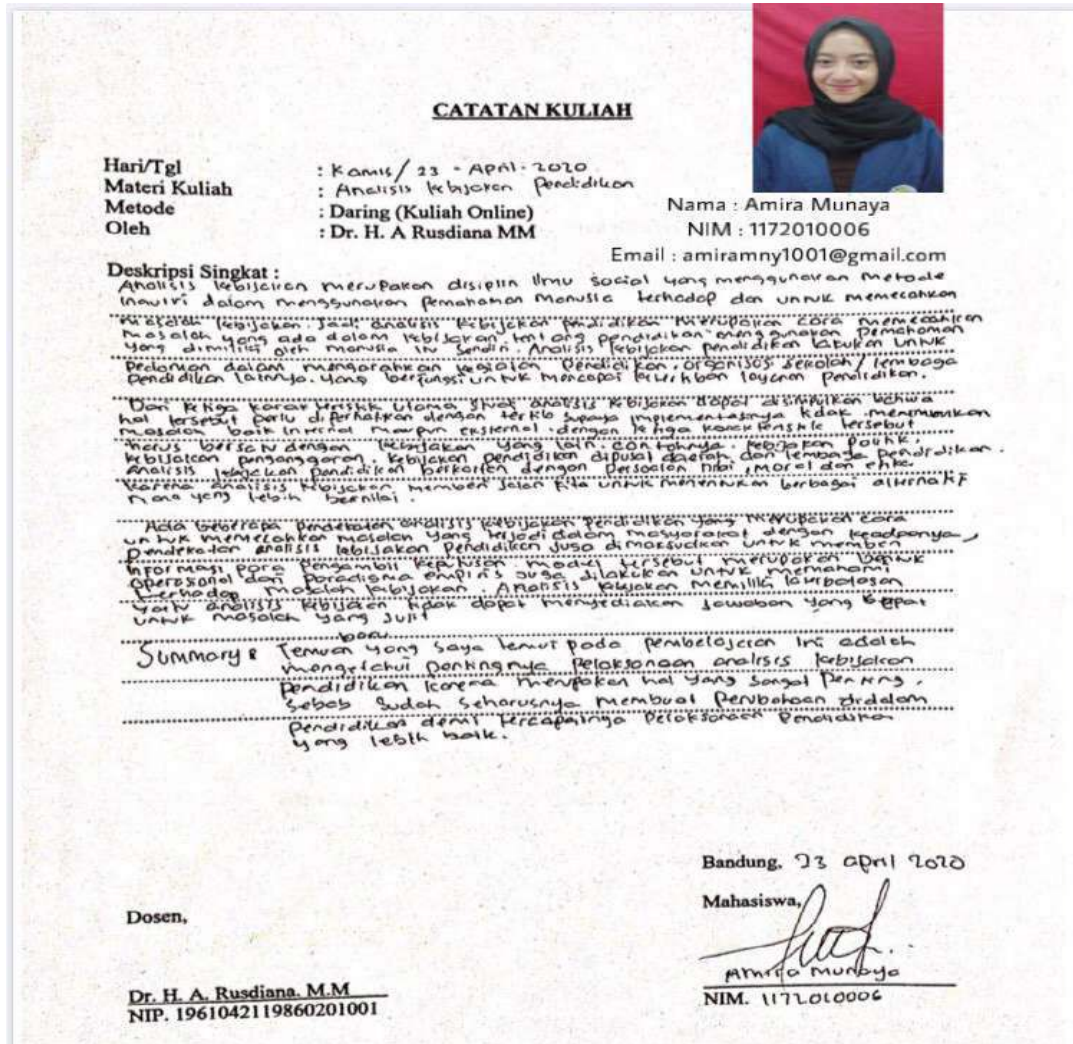 CATATAN KULIAH
Hari/Tgl : Kamis/ 23 - April - 2020
Materi Kuliah : Analisis kebijakan Pendidikan
Metode : Daring (Kuliah Online)
Oleh : Dr. H. A Rusdiana MM
Nama : Amira Munaya
NIM : 1172010006
Email : amiramny1001@gmail.com
Deskripsi Singkat :
Analisis kebijakan merupakan disiplin Ilmu social yang menggunakan metode
inquiri dalam menggunakan pemahaman manusia terhadap dan untuk memecahkan
masalah kebijakan. Jadi analisis kebijakan pendidikan merupakan cara memecahkan
masalah yang ada dalam kebijakan tentang pendidikan menggunakan pemahaman
yang dimiliki oleh manusia itu sendiri. Analisis kebijakan pendidikan lakukan untuk
Pedoman dalam mengarahkan kegiatan pendidikan, organisas sekolah/lembaga
pendidikan lainnya. yang berfungsi untuk mencapai layanan pendidikan.
Dari ketiga karakteristik utama analisis kebijakan dapat disimpulkan bahwa
hal tersebut perlu diperhatikan dengan tertib supaya implementasinya tidak menimbulkan
masalah baik internal maupun eksternal. dengan ketiga karakteristik tersebut
harus bersatu dengan kebijakan yang lain. contohnya, kebijakan politik,
kebijakan penganggaran, kebijakan pendidikan dipusat daerah dan lembaga pendidikan.
analisis kebijakan pendidikan berkaitan dengan persoalan nilai, moral dan etika
karena analisis kebijakan memberi jalan kita untuk menentukan berbagai alternatif
mana yang lebih bernilai.
Ada beberapa pendekatan analisis kebijakan pendidikan yang merupakan cara
untuk memecahkan masalah yang terjadi dalam masyarakat dengan keadaanya,
pendekatan analisis kebijakan pendidikan juga dimaksudkan untuk memberi
informasi para pengambil keputusan. model tersebut merupakan bentuk
operasional dari paradigma empiris juga dilakukan untuk memahami
terhadap masalah kebijakan. Analisis kebijakan memiliki
yaitu analisis kebijakan tidak dapat menyediakan jawaban yang tepat
untuk masalah yang sulit
baru
Summary : Temuan yang saya temui pada pembelajaran ini adalah
mengetahui pentingnya pelaksanaan analisis kebijakan
pendidikan karena merupakan hal yang sangat penting,
sebab sudah seharusnya membuat perubahan didalam
pendidikan demi tercapainya pelaksanaan pendidikan
yang lebih baik.
Bandung, 23 april 2020
Dosen,
Mahasiswa,
Amira Munaya
Dr. H. A. Rusdiana. M.M
NIM. 1172010006
NIP. 1961042119860201001